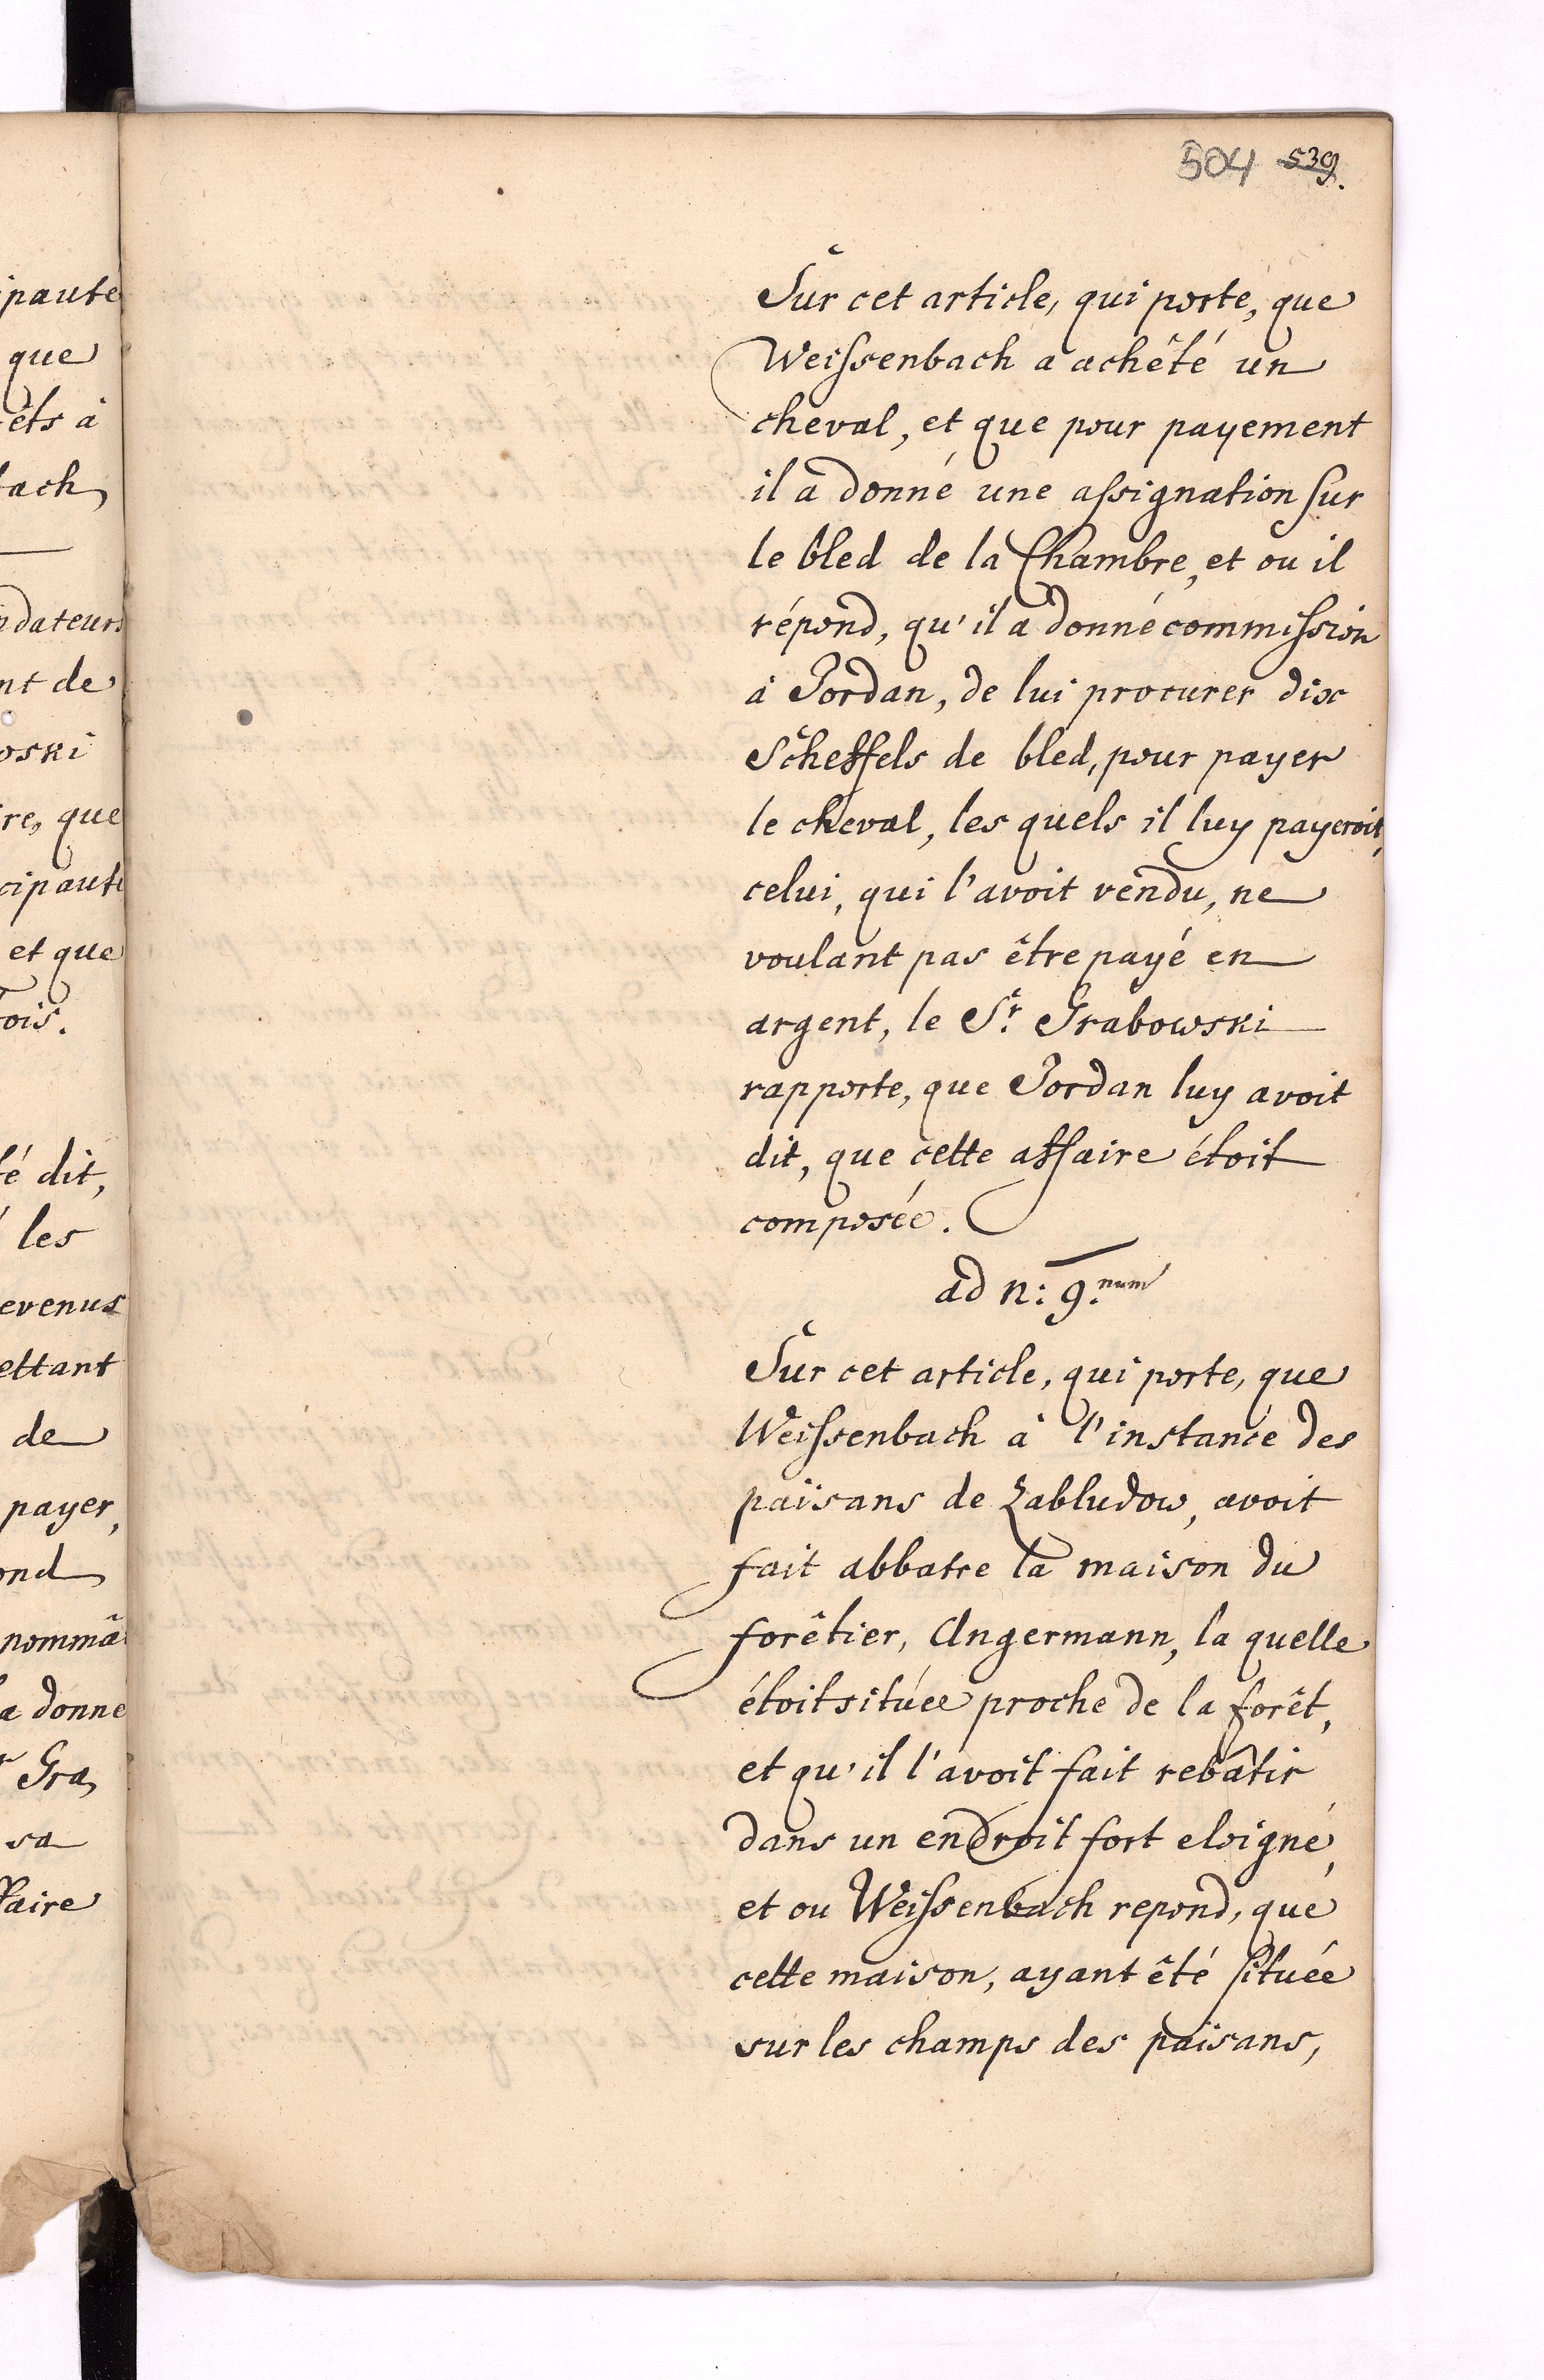 504 539.
Sur cet article, qui porte, que
Weissenbach a achêté un
cheval, et que pour payement
il a donné une assignation sur
le bled de la Chambre, et ou il
répond, qu'il a donné commission
à Jordan, de lui procurer dix
Scheffels de bled, pour payer
le cheval, les quels il luy payeroit,
celui, qui l'avoit vendu, ne
voulant pas être payé en
argent, le Sr. Grabowski
rapporte, que Jordan luy avoit
dit, que cette affaire étoit
composée.
ad n: 9.num
Sur cet article, qui porte, que
Weissenbach à l'instance des
païsans de Zabludow, avoit
fait abbatre la maison du
forêtier, Angermann, la quelle
étoit située proche de la forêt,
et qu'il l'avoit fait rebâtir
dans un endroit fort eloigné,
et ou Weissenbach repond, que
cette maison, ayant êté située
sur les champs des païsans,
ipaute
que
êts à
bach
ndateurs
nt de
oski
re, que
cipaute
et que
ois.
té dit,
les
evenus
ettant
de
payer,
ond
nommâ
a donne
r Gra,
sa
ffaire